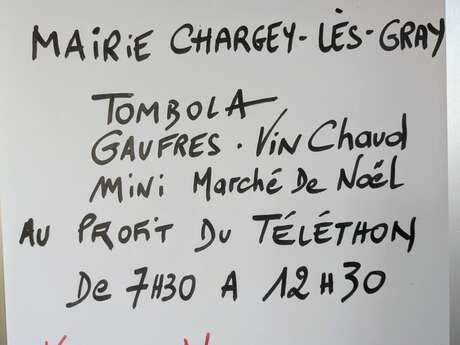 MAIRIE CHARGEY-LÈS-GRAY
TOMBOLA
GAUFRES. VIN CHAUD
MINI MARCHÉ DE NOËL
AU PROFIT DU TÉLÉTHON
DE 7H30 A 12H30